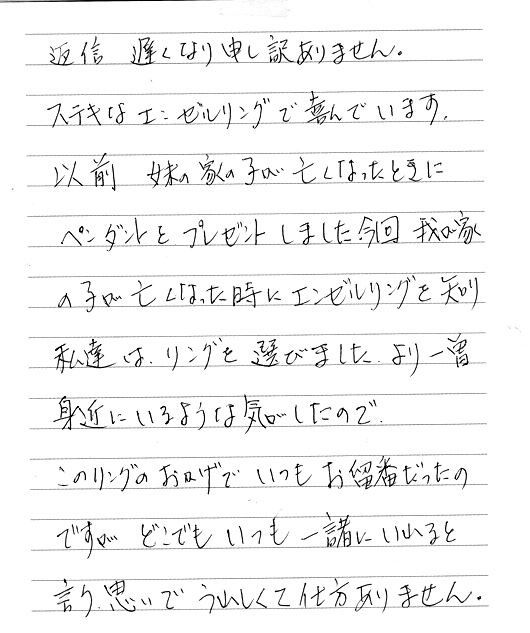 返信 遅くなり申し訳ありません。
ステキなエンゼルリングで喜んでいます。
以前 妹の家の子が亡くなったときに
ペンダントをプレゼントしました。今回 我が家
の子が亡くなった時にエンゼルリングを知り
私達は、リングを選びました。より一層
身近にいるような気がしたので、
このリングのおかげで いつもお留番だったの
ですが どこでも いつも 一諸にいれると
言う思いで うれしくて仕方ありません。